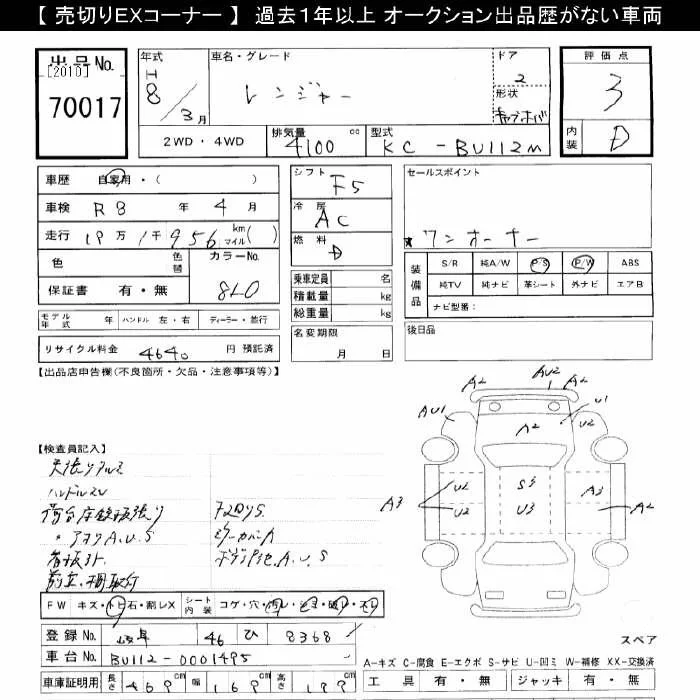 【 売切りEXコーナー 】 過去１年以上 オークション出品歴がない車両
出品No.
[2010]
70017
年式
H
8／3月
車名・グレード
レンジャー
ドア
2
形状
評価点
3
内装
D
2WD・4WD
排気量
4100 cc
型式
KC-BU112M
車歴 自家用・( )
車検 R8 年 4 月
走行 19万1千956 km マイル ( )
色
色替
カラーNo.
保証書 有・無
820
モデル年式 年 ハンドル 左・右 ディーラー・並行
リサイクル料金 4640 円 預託済
シフト
F5
冷房
AC
燃料
D
乗車定員 名
積載量 kg
総重量 kg
名変期限
月 日
セールスポイント
★ ワンオーナー
装備品
S/R 純A/W P/S P/W ABS
純TV 純ナビ 革シート 外ナビ エアB
ナビ型番：
後日品
【出品店申告欄(不良箇所・欠品・注意事項等)】
【検査員記入】
天張りヤブレ
ハンドルスレ
・アオリA.U.S
A2 AU2 A2
AU1 A2 U1 U2
A3 U2 S3 A3 A2
U2 U3
FW キズ・トビ石・割レX シート内装 コゲ・穴・汚レ・シミ・破レ・スレ
登録No. 岐阜 46 ひ 8368
車台No. BU112-0001495
車庫証明用 長さ 469 cm 幅 169 cm 高さ 199 cm
スペア
A-キズ C-腐食 E-エクボ S-サビ U-凹ミ W-補修 XX-交換済
工具 有・無 ジャッキ 有・無